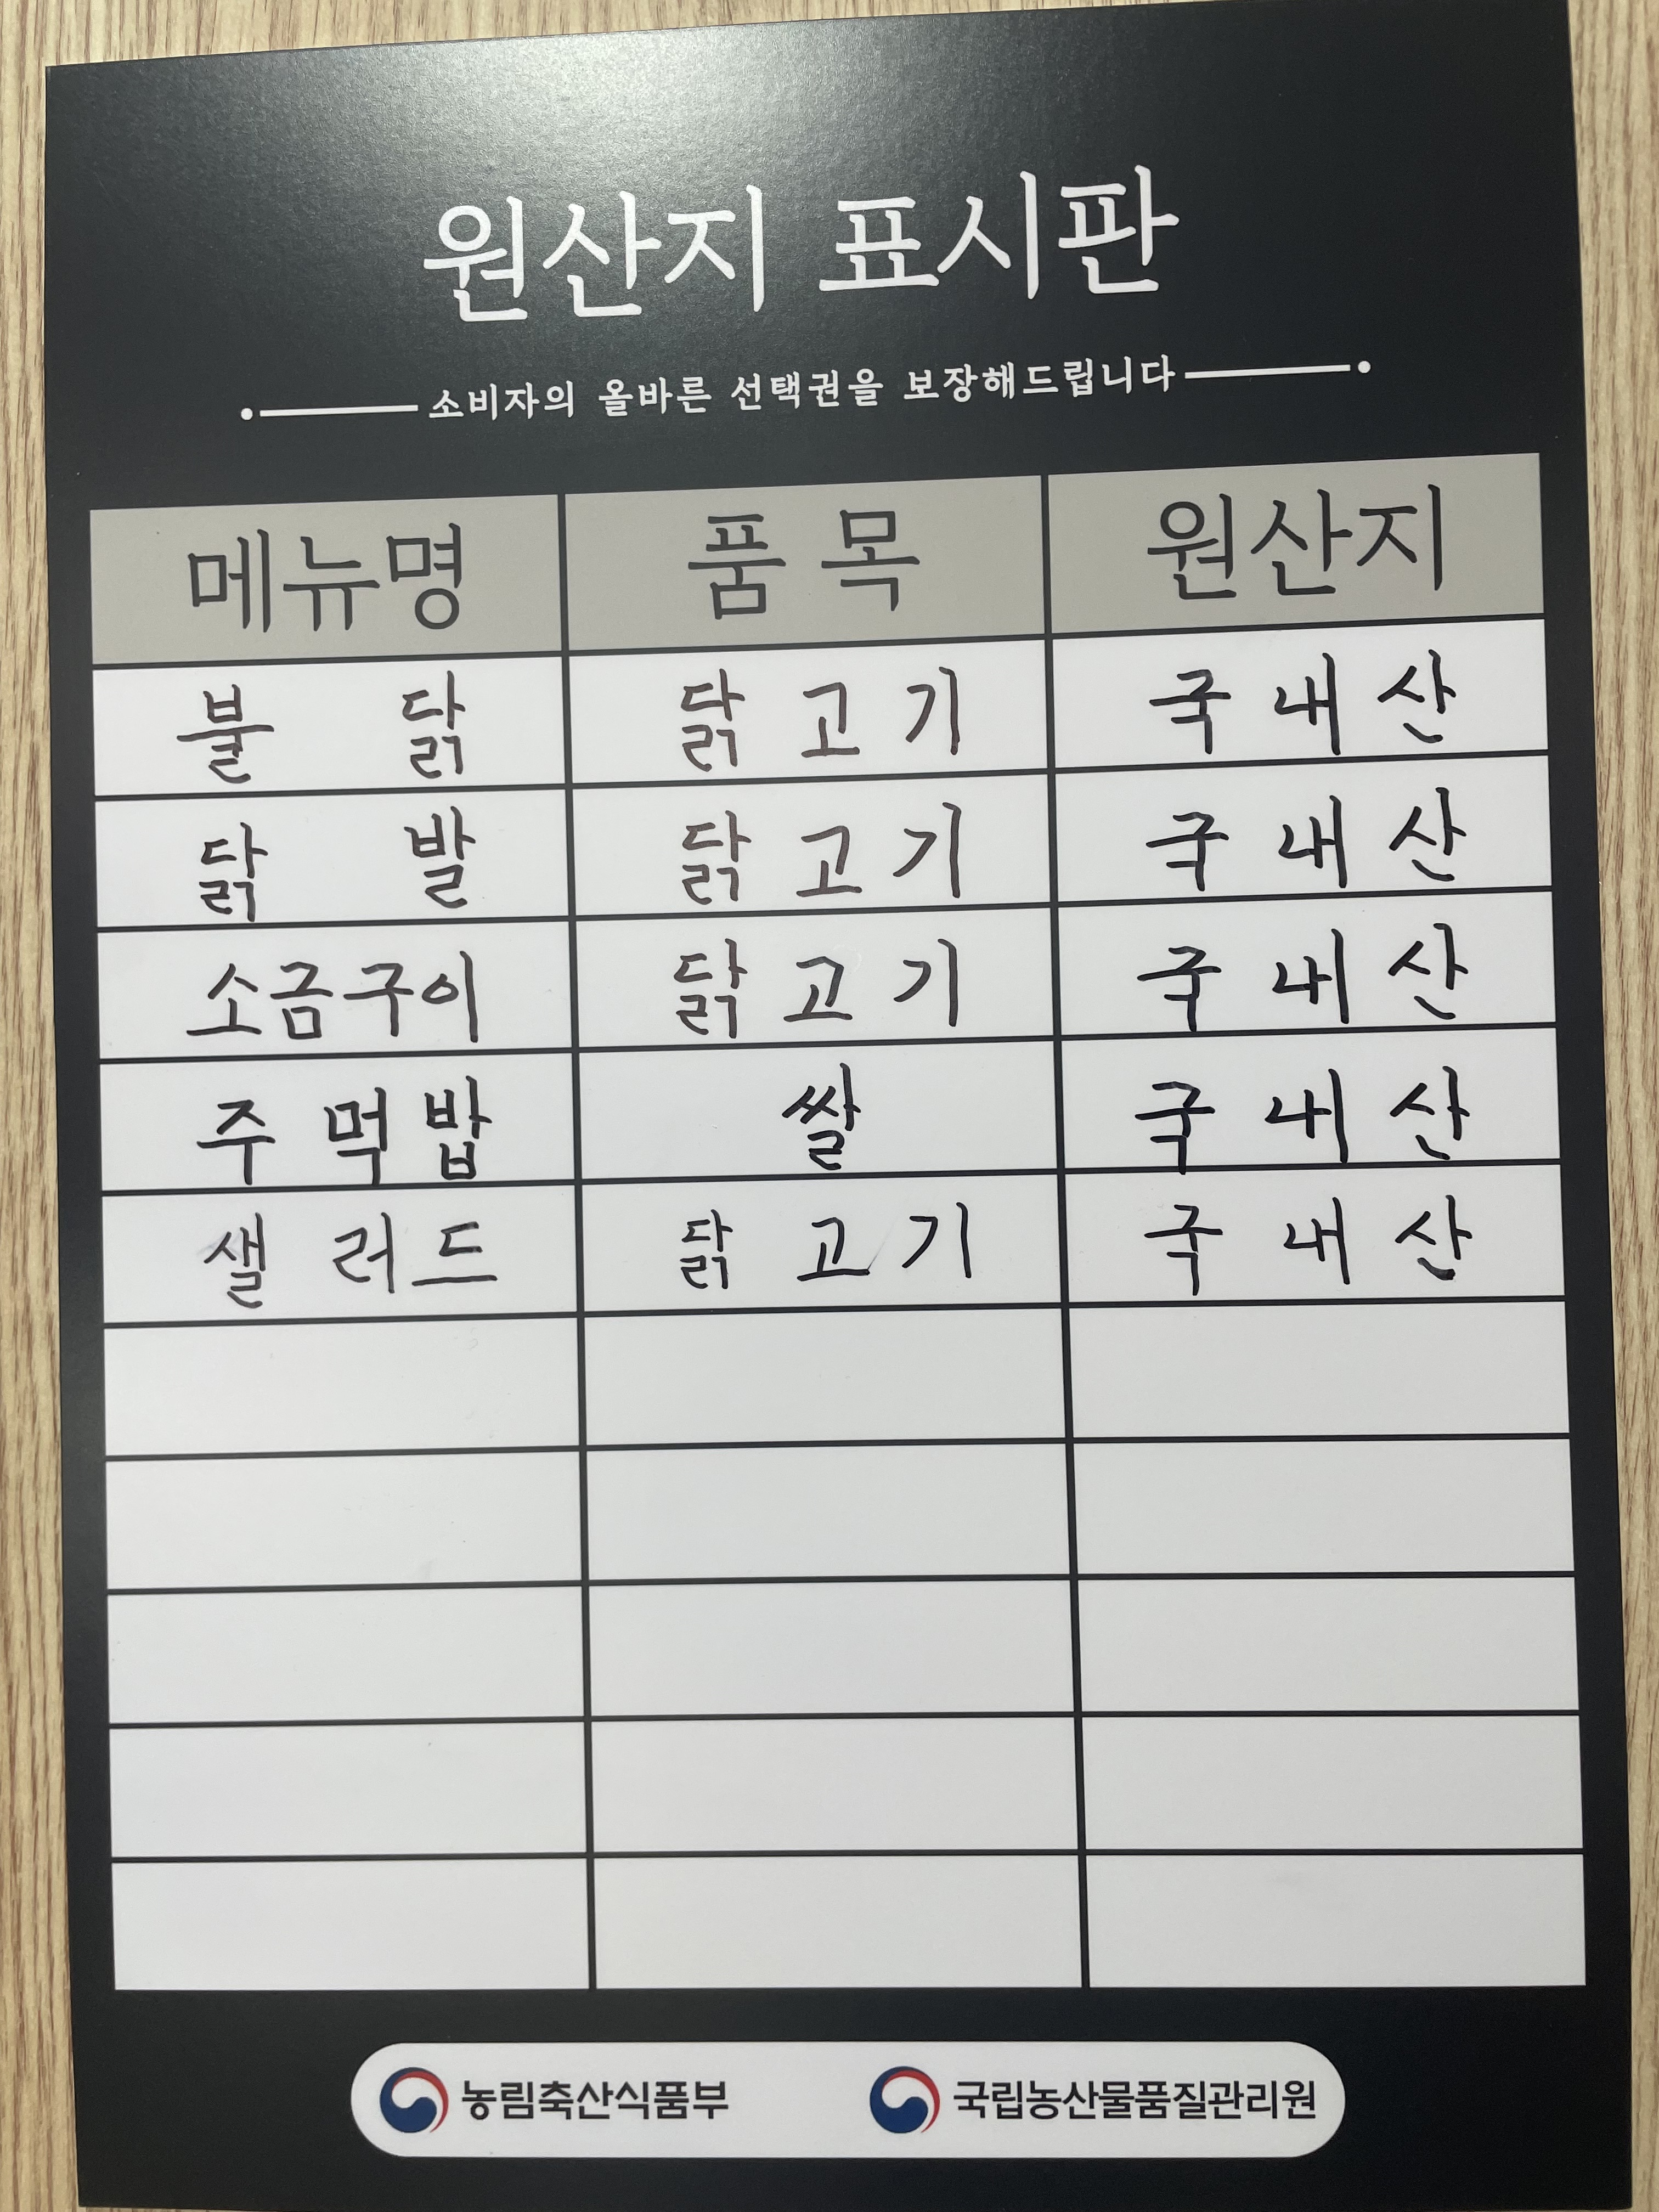 원산지 표시판
소비자의 올바른 선택권을 보장해드립니다
메뉴명 품목 원산지
불닭 닭고기 국내산
닭발 닭고기 국내산
소금구이 닭고기 국내산
주먹밥 쌀 국내산
샐러드 닭고기 국내산
농림축산식품부 국립농산물품질관리원